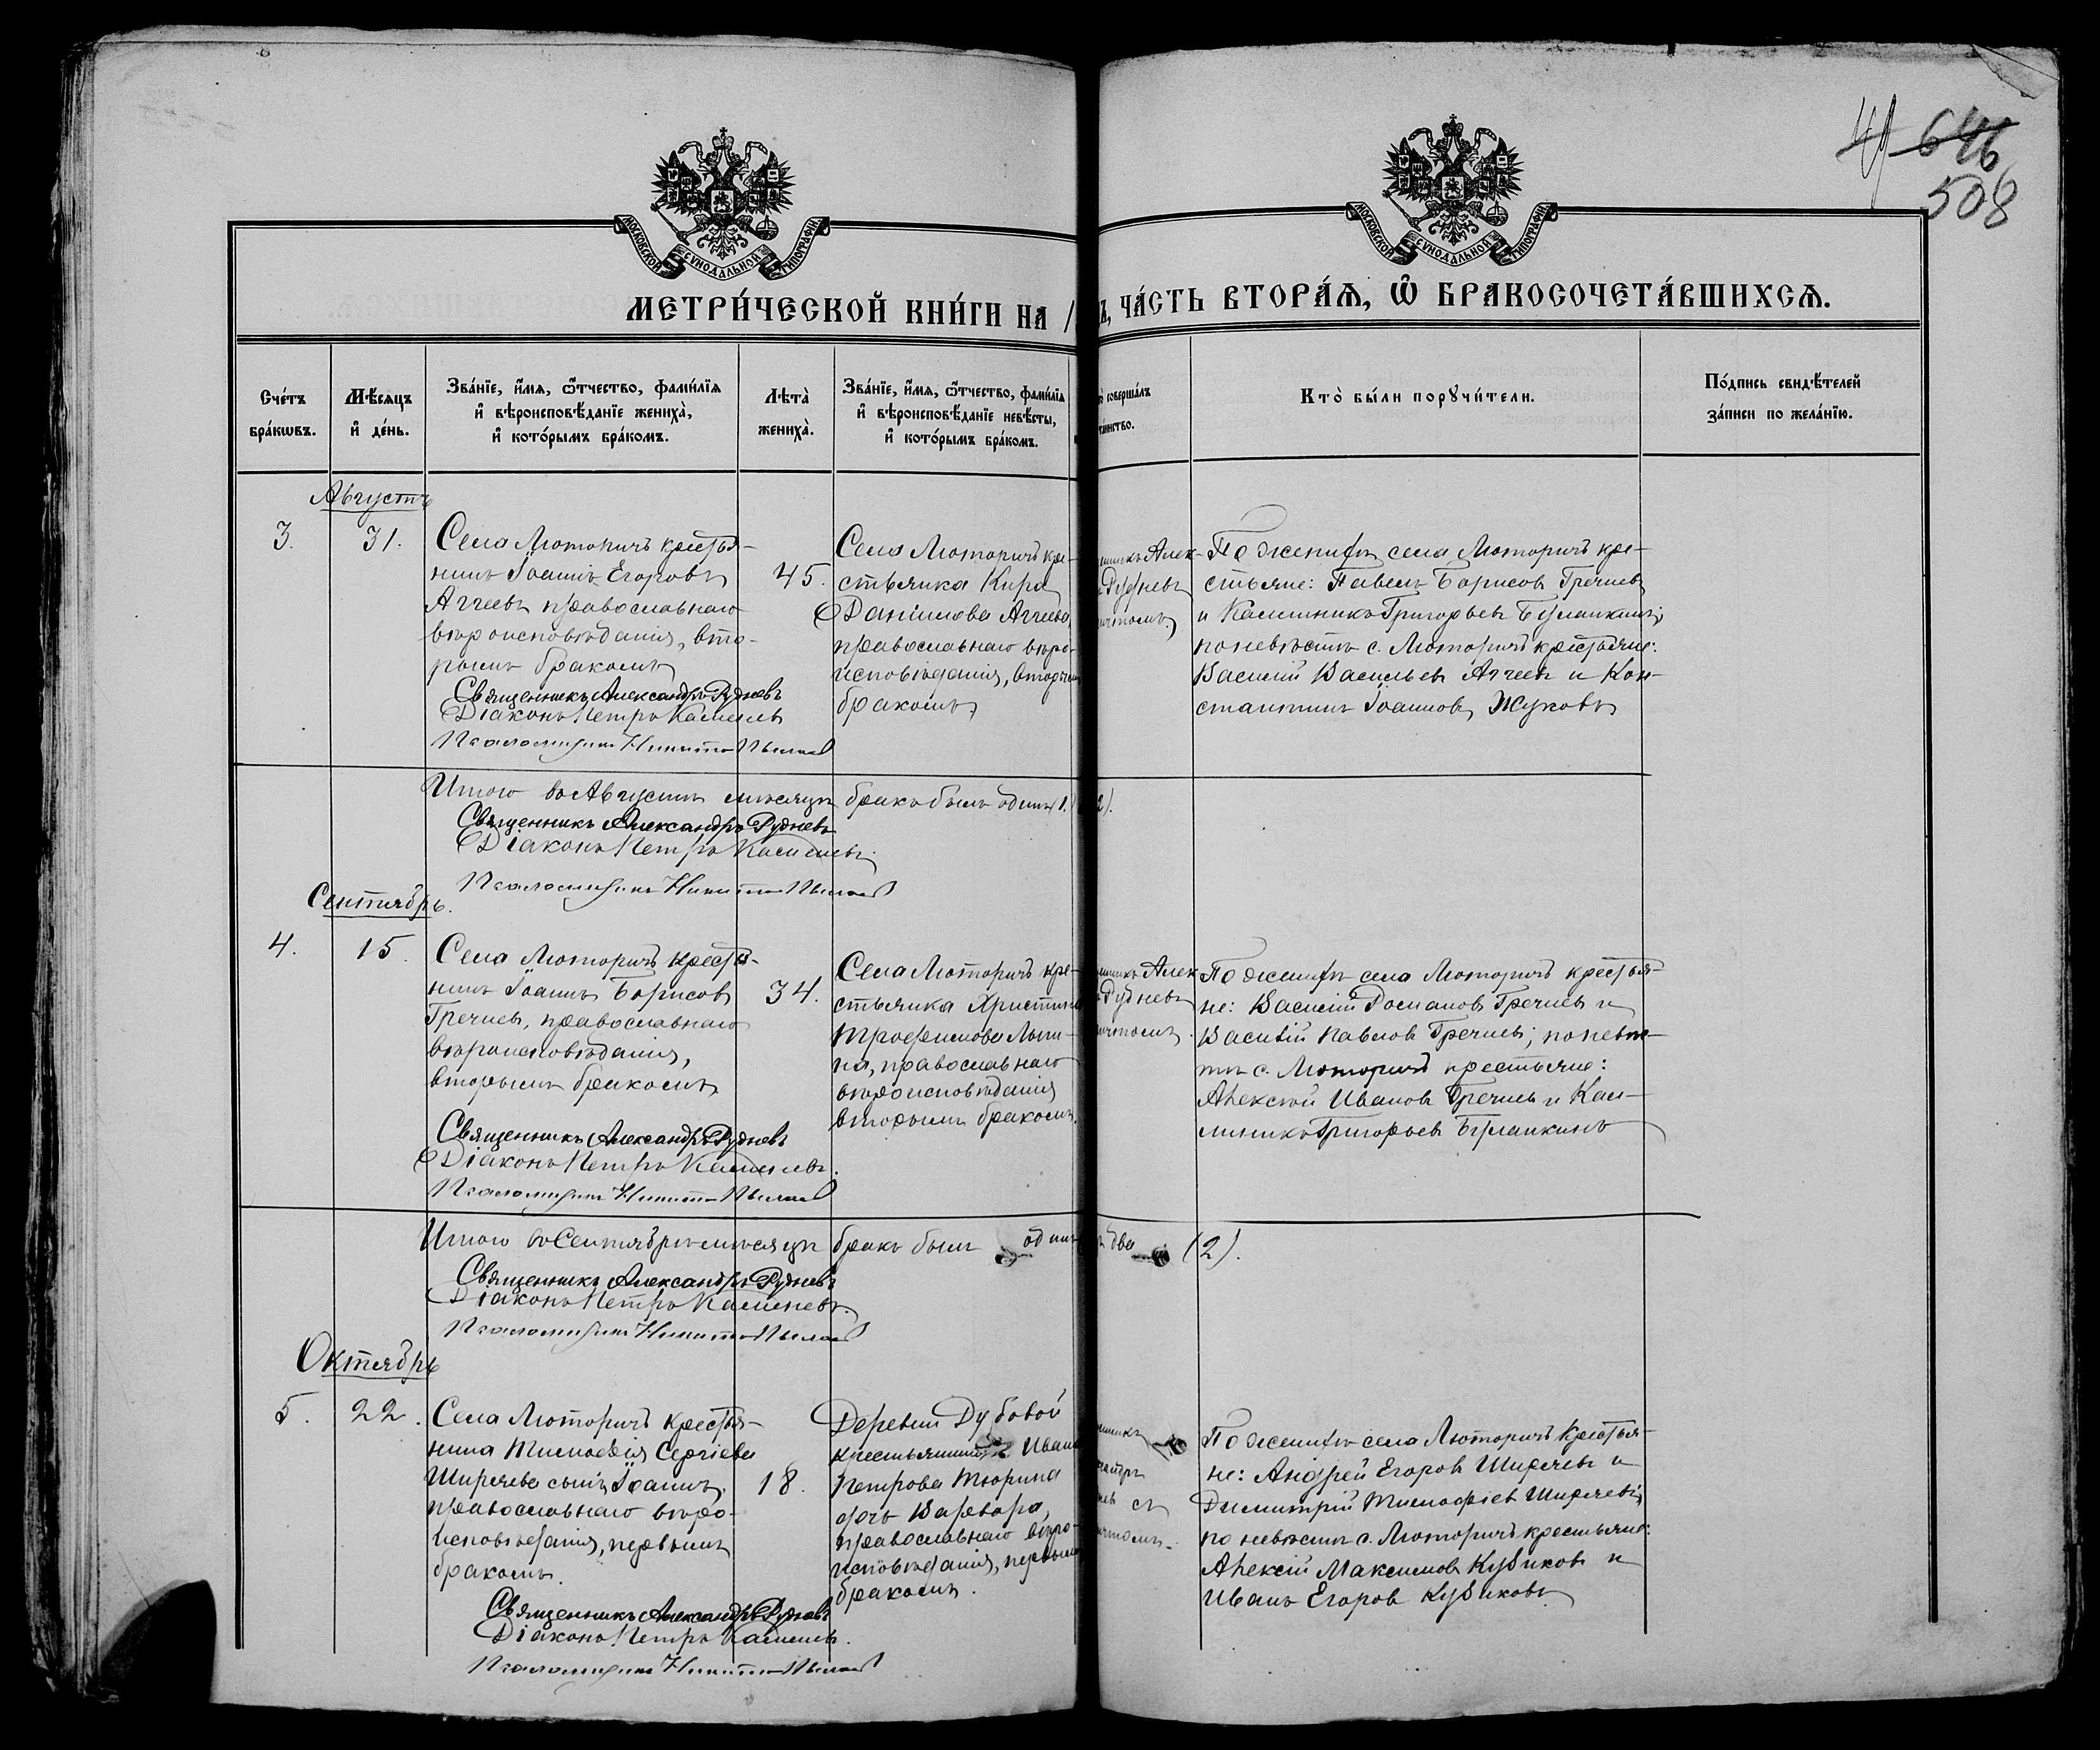 646
508
МОСКОВСКОЙ СѴНОДАЛЬНОЙ ТИПОГРАФІИ
МОСКОВСКОЙ СѴНОДАЛЬНОЙ ТИПОГРАФІИ
МЕТРИ́ЧЕСКОЙ КНИ́ГИ НА
Ъ, ЧА́СТЬ ВТОРА́Ѧ, Ѽ БРАКОСОЧЕТА́ВШИХСѦ.
Сче́тъ
бра́кѡвъ.
Мѣ́сяцъ
и҆ де́нь.
Зва́нїе, и҆́мѧ, ѻ҆́тчество, фами́лїѧ
и҆ вѣроисповѣ́данїе жениха̀,
и҆ кото́рымъ бра́комъ.
Лѣта̀
жениха̀.
Зва́нїе, и҆́мѧ, ѻ҆́тчество, фами́лїѧ
и҆ вѣроисповѣ́данїе невѣ́сты,
и҆ кото́рымъ бра́комъ.
соверша́лъ
та́инство.
Кто̀ бы́ли порꙋчи́тели.
По́дпись свидѣ́телей
за́писи по жела́нїю.
Августъ
3.
31.
Села Люторичъ крестья-
нинъ Іоаннъ Егоровъ
Агеевъ православнаго
вѣроисповѣданія, вто-
рымъ бракомъ
Священникъ Александръ Рудневъ
Діаконъ Петръ Каменевъ
Псаломщикъ Никита
45.
Села Люторичъ кре-
стьянка Кира
Даніилова Агеева,
православнаго вѣро-
исповѣданія, вторымъ
бракомъ
Алек-
Рудневъ
причтомъ
По женихѣ села Люторичъ кре-
стьяне: Павелъ Борисовъ Гречневъ
и Калинникъ Григорьевъ Буланкинъ;
по невѣстѣ с. Люторичъ крестьяне:
Василій Васильевъ Агеевъ и Кон-
стантинъ Іоанновъ Жуковъ
Итого въ Августѣ мѣсяцѣ бракъ былъ одинъ 1.
2).
Священникъ Александръ Рудневъ
Діаконъ Петръ Каменевъ.
Псаломщикъ Никита
Сентябрь.
4.
15.
Села Люторичъ крестья-
нинъ Іоаннъ Борисовъ
Гречневъ, православнаго
вѣроисповѣданія,
вторымъ бракомъ
Священникъ Александръ Рудневъ
Діаконъ Петръ Каменевъ.
Псаломщикъ Никита
34.
Села Люторичъ кре-
стьянка Христина
Трофимова
православнаго
вѣроисповѣданія
вторымъ бракомъ.
Алек
Рудневъ
причтомъ.
По женихѣ села Люторичъ крестья-
не: Василій Романовъ Гречневъ и
Василій Павловъ Гречневъ; по невѣс-
тѣ с. Люторичъ крестьяне:
Алексѣй Ивановъ Гречневъ и Кали-
нникъ Григорьевъ Буланкинъ
Итого въ Сентябрѣ мѣсяцѣ бракъ былъ одинъ
два (2).
Священникъ Александръ Рудневъ
Діаконъ Петръ Каменевъ.
Псаломщикъ Никита
Октябрь
5.
22.
Села Люторичъ крестья-
нина Тимоѳея Сергіева
Ширяева сынъ Іоаннъ,
православнаго вѣро-
исповѣданія, первымъ
бракомъ.
Священникъ Александръ Рудневъ
Діаконъ Петръ Каменевъ.
Псаломщикъ Никита
18.
Деревни Дубовой
крестьянина Ивана
Петрова Тюрина
дочь Варвара,
православнаго вѣро-
исповѣданія, первымъ
бракомъ.
съ
причтомъ.
По женихѣ села Люторичъ крестья-
не: Андрей Егоровъ Ширяевъ и
Димитрій Тимоѳіевъ Ширяевъ;
по невѣстѣ с. Люторичъ крестьяне:
Алексій Максимовъ Кубиковъ и
Иванъ Егоровъ Кубиковъ